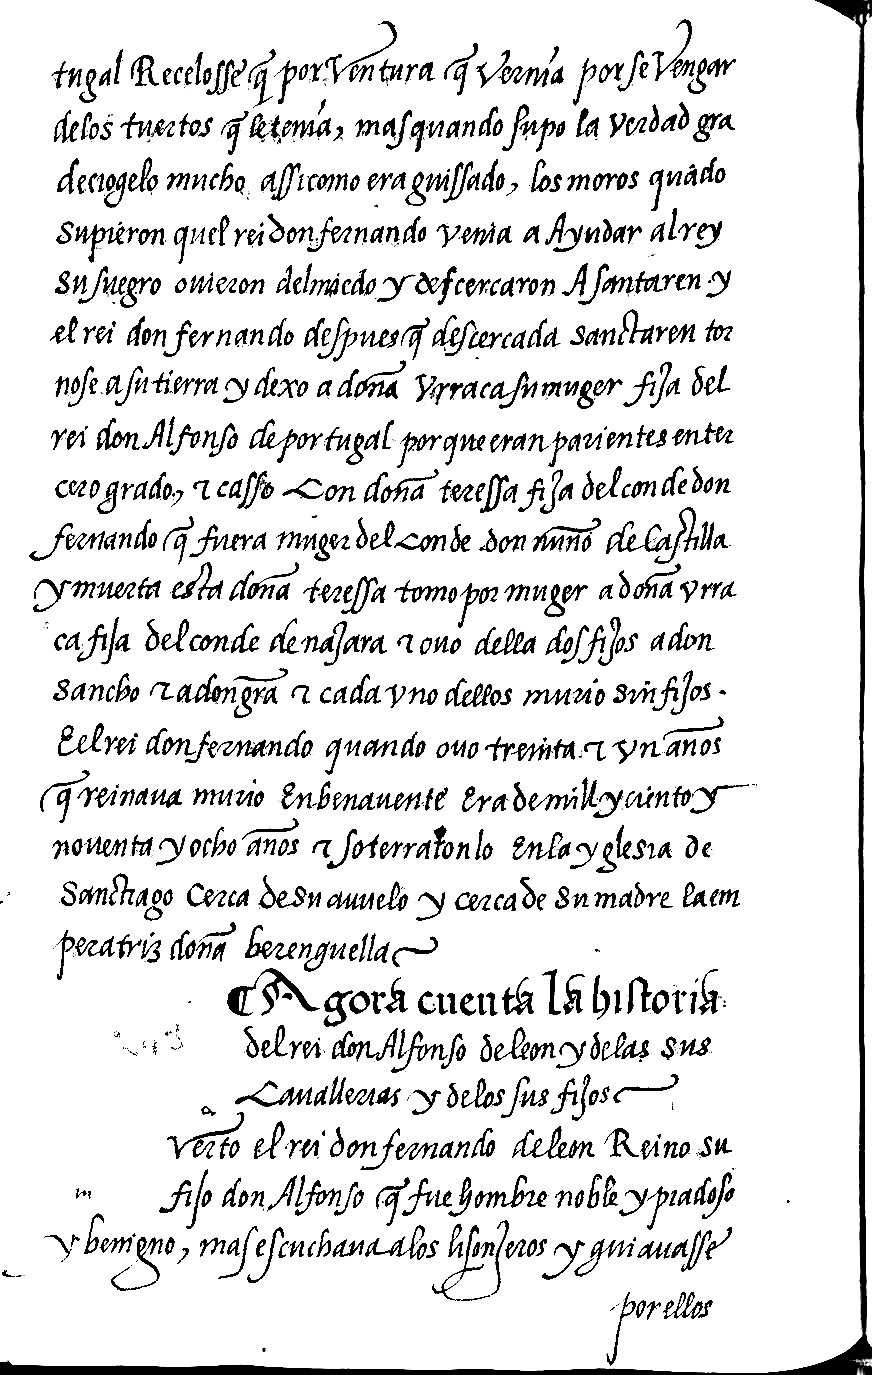 tugal Recelosse q̃ por Ventura q̃ Vernía por se Vengar
de los tuertos q̃ le tenía, mas quando supo la verdad gra
deciogelo mucho assi como era guissado, los moros quãdo
supieron quel rei don fernando venia a Ayudar al rey
su suegro ouieron del miedo y desçercaron A santaren y
el rei don fernando despues q̃ descercada sanctaren tor
nose a su tierra y dexo a doña Vrraca su muger fija del
rei don Alfonso de portugal por que eran parientes en ter
cero grado, ⁊ casso Con doña teressa fija del conde don
fernando q̃ fuera muger del Conde don nuño de Castilla
y muerta esta doña teressa tomo por muger a doña vrra
ca fija del conde de najara ⁊ ouo della dos fijos a don
sancho ⁊ a don gr̃a ⁊ cada vno dellos murio sin fijos.
E el rei don fernando quando ouo treinta ⁊ vn años
q̃ reinaua murio En benauente Era de mill y ciento y
nouenta y ocho años ⁊ soterraronlo En la yglesia de
Sanctiago Cerca de su auuelo y cerca de su madre la em
peratriz doña berenguella
¶ Agora cuenta la historia
del rei don Alfonso de leon y de las sus
Cauallerias y de los sus fijos
a
verto el rei don fernando de leon Reino su
m fijo don Alfonso q̃ fue hombre noble y piadoso
y benigno, mas escuchaua a los lisonjeros y guiauasse
por ellos